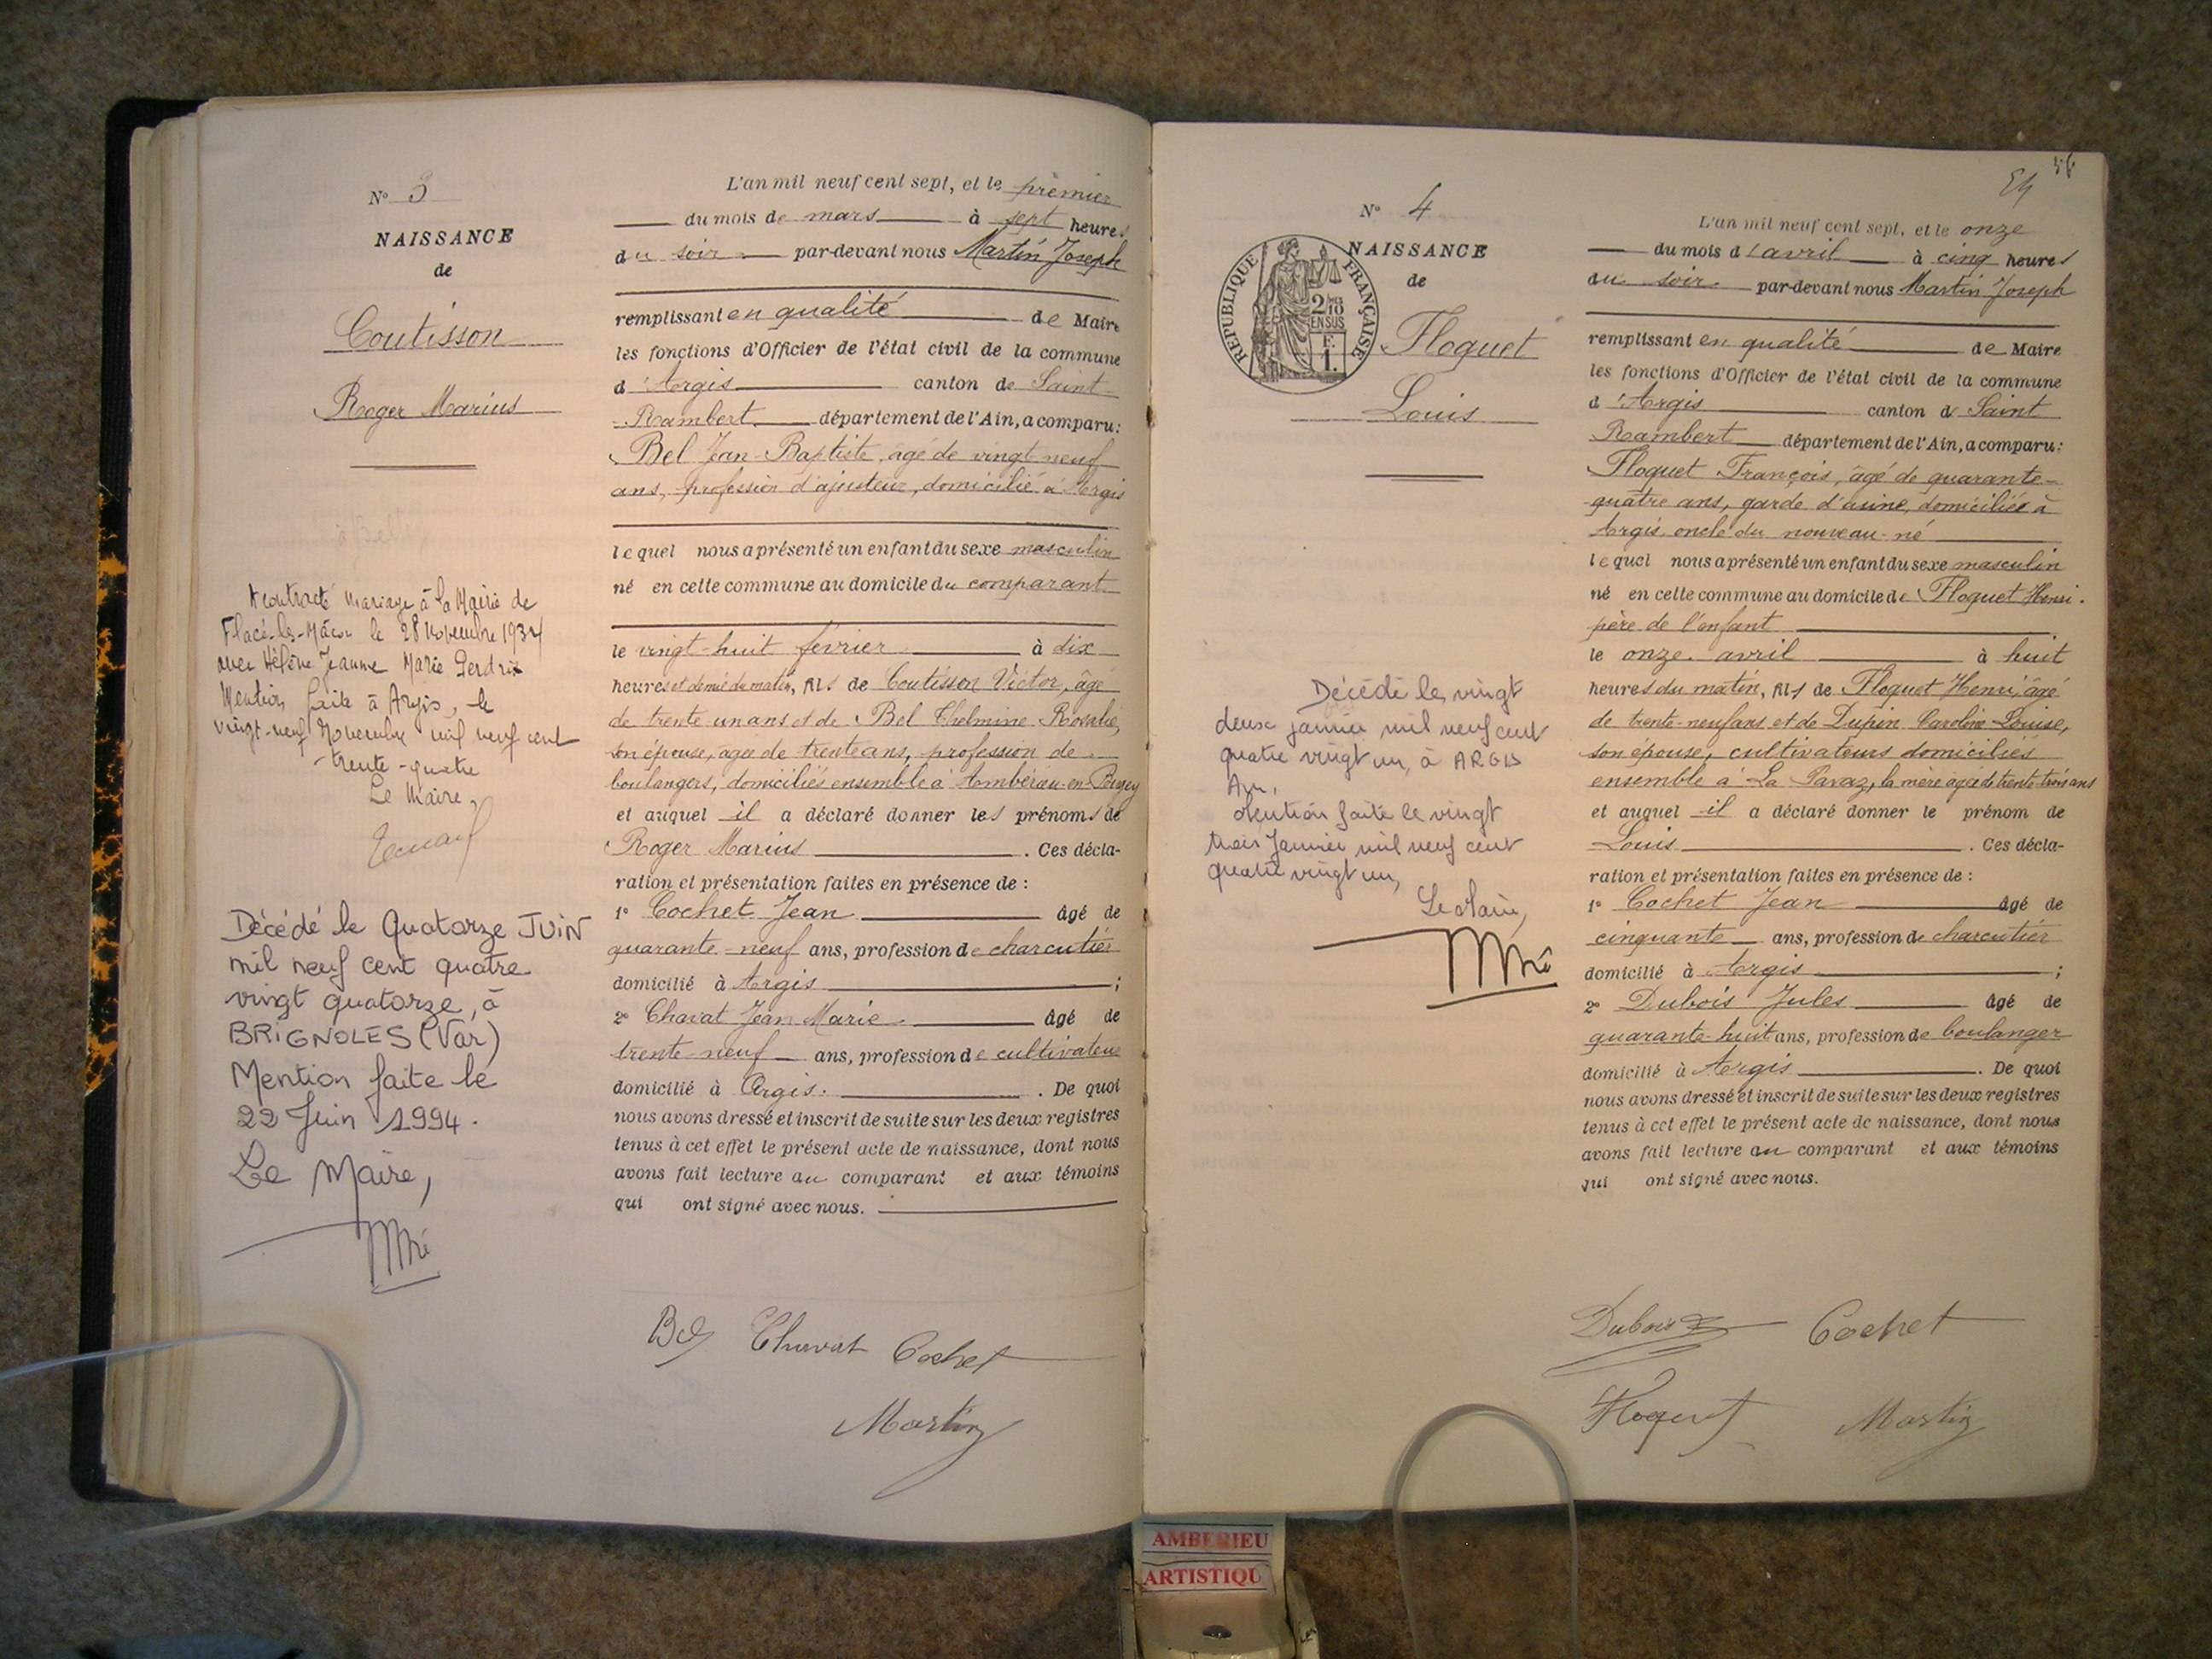 N° 3
NAISSANCE
de
Coutisson
Roger Marius
A contracté mariage à la Mairie de
Flacé-lès-Mâcon le 28 Novembre 1934
avec Hélène Jeanne Marie Perdrix
Mention faite à Argis, le
vingt-neuf Novembre mil neuf cent
trente-quatre
Le Maire,
Décédé le Quatorze JUIN
mil neuf cent quatre
vingt quatorze, à
BRIGNOLES (Var)
Mention faite le
22 Juin 1994.
Le Maire,
L'an mil neuf cent sept, et le premier
du mois de mars à sept heures
du soir par-devant nous Martin Joseph
remplissant en qualité de Maire
les fonctions d'Officier de l'état civil de la commune
d'Argis canton de Saint
Rambert département de l'Ain, a comparu:
Bel Jean-Baptiste, âgé de vingt neuf
ans, profession d'ajusteur, domicilié à Argis
lequel nous a présenté un enfant du sexe masculin
né en cette commune au domicile du comparant
le vingt-huit février à dix
heures et demie du matin, fils de Coutisson Victor, âgé
de trente un ans et de Bel Thelmine Rosalie,
son épouse, âgée de trente ans, profession de
boulangers, domiciliés ensemble à Ambérieu-en-Bugey
et auquel il a déclaré donner les prénoms de
Roger Marius. Ces décla-
ration et présentation faites en présence de :
1° Cochet Jean âgé de
quarante-neuf ans, profession de charcutier
domicilié à Argis ;
2° Chavat Jean Marie âgé de
trente-neuf ans, profession de cultivateur
domicilié à Argis. De quoi
nous avons dressé et inscrit de suite sur les deux registres
tenus à cet effet le présent acte de naissance, dont nous
avons fait lecture au comparant et aux témoins
qui ont signé avec nous.
Bel Chavat Cochet
Martin
54 56
N° 4
NAISSANCE
de
Floquet
Louis
REPUBLIQUE FRANÇAISE
2/10
EN SUS
F.
1.
Décédé le vingt
deux janvier mil neuf cent
quatre vingt un, à ARGIS
Ain,
Mention faite le vingt
trois Janvier mil neuf cent
quatre vingt un,
Le Maire,
L'an mil neuf cent sept, et le onze
du mois d'avril à cinq heures
du soir par-devant nous Martin Joseph
remplissant en qualité de Maire
les fonctions d'Officier de l'état civil de la commune
d'Argis canton d Saint
Rambert département de l'Ain, a comparu:
Floquet François, âgé de quarante-
quatre ans, garde d'usine, domicilié à
Argis, oncle du nouveau-né
lequel nous a présenté un enfant du sexe masculin
né en cette commune au domicile de Floquet Henri
père de l'enfant
le onze avril à huit
heures du matin, fils de Floquet Henri, âgé
de trente-neuf ans et de Dupin Caroline Louise,
son épouse, cultivateurs domiciliés
ensemble à La Pavaz, la mère âgée de trente-trois ans
et auquel il a déclaré donner le prénom de
Louis. Ces décla-
ration et présentation faites en présence de :
1° Cochet Jean âgé de
cinquante ans, profession de charcutier
domicilié à Argis ;
2° Dubois Jules âgé de
quarante-huit ans, profession de boulanger
domicilié à Argis. De quoi
nous avons dressé et inscrit de suite sur les deux registres
tenus à cet effet le présent acte de naissance, dont nous
avons fait lecture au comparant et aux témoins
qui ont signé avec nous.
Dubois Cochet
Floquet Martin
AMBERIEU
ARTISTIQU